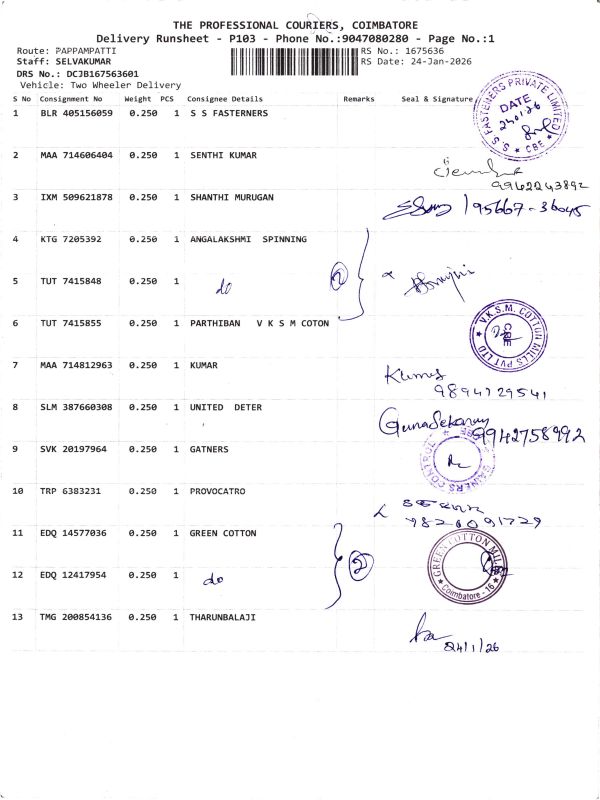 THE PROFESSIONAL COURIERS, COIMBATORE
Delivery Runsheet - P103 - Phone No.:9047080280 - Page No.:1
Route: PAPPAMPATTI
RS No.: 1675636
Staff: SELVAKUMAR
RS Date: 24-Jan-2026
DRS No.: DCJB167563601
Vehicle: Two Wheeler Delivery
S No Consignment No Weight PCS Consignee Details Remarks Seal & Signature
S S FASTENERS PRIVATE LIMITED
DATE
CBE
1 BLR 405156059 0.250 1 S S FASTERNERS
2 MAA 714606404 0.250 1 SENTHI KUMAR
9962243892
3 IXM 509621878 0.250 1 SHANTHI MURUGAN
95667-36045
4 KTG 7205392 0.250 1 ANGALAKSHMI SPINNING
5 TUT 7415848 0.250 1 do
2
6 TUT 7415855 0.250 1 PARTHIBAN V K S M COTON
V.K.S.M. COTTON MILLS PVT LTD
CBE
7 MAA 714812963 0.250 1 KUMAR
Kumar
9894729541
8 SLM 387660308 0.250 1 UNITED DETER
GunaSekaran
9942758992
9 SVK 20197964 0.250 1 GATNERS
10 TRP 6383231 0.250 1 PROVOCATRO
11 EDQ 14577036 0.250 1 GREEN COTTON
GREEN COTTON MILLS
Coimbatore - 16
12 EDQ 12417954 0.250 1 do
2
13 TMG 200854136 0.250 1 THARUNBALAJI
24/1/26